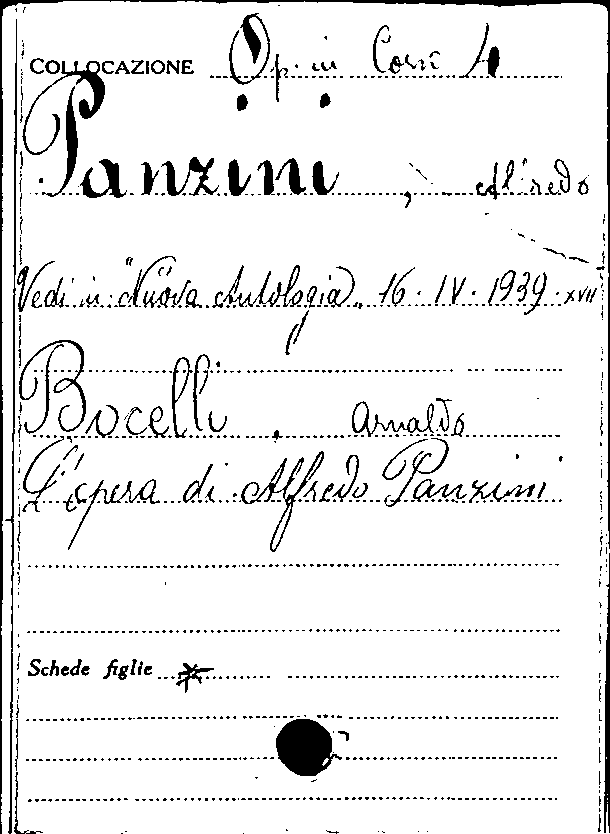 COLLOCAZIONE Op. in Corsi 4
Panzini, Alfredo
Vedi in: "Nuova Antologia„ 16. IV. 1939. XVII
Bocelli. Arnaldo
L'opera di Alfredo Panzini
Schede figlie *